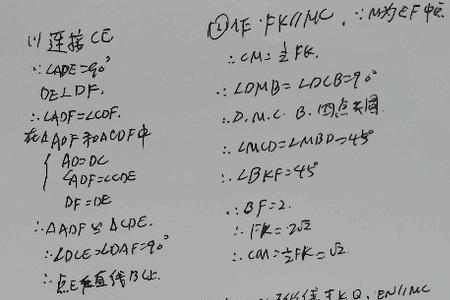 (1) 连接 CE
∵∠ADE=90°
DE⊥DF.
∴∠ADF=∠CDF.
在△ADF和△CDF中
AD=DC
∠ADF=∠CDE
DF=DE
∴△ADF≌△CDE.
∴∠DCE=∠DAF=90°
∴点E在直线BC上.
(2) 作FK//MC, ∵M为EF中点
∴CM=½FK.
∵∠DMB=∠DCB=90°
∴D.M.C.B.四点共圆
∴∠MCD=∠MBD=45°
∴∠BKF=45°
∵BF=2.
∴FK=2√2
∴CM=½FK=√2.
K Q, EN//MC